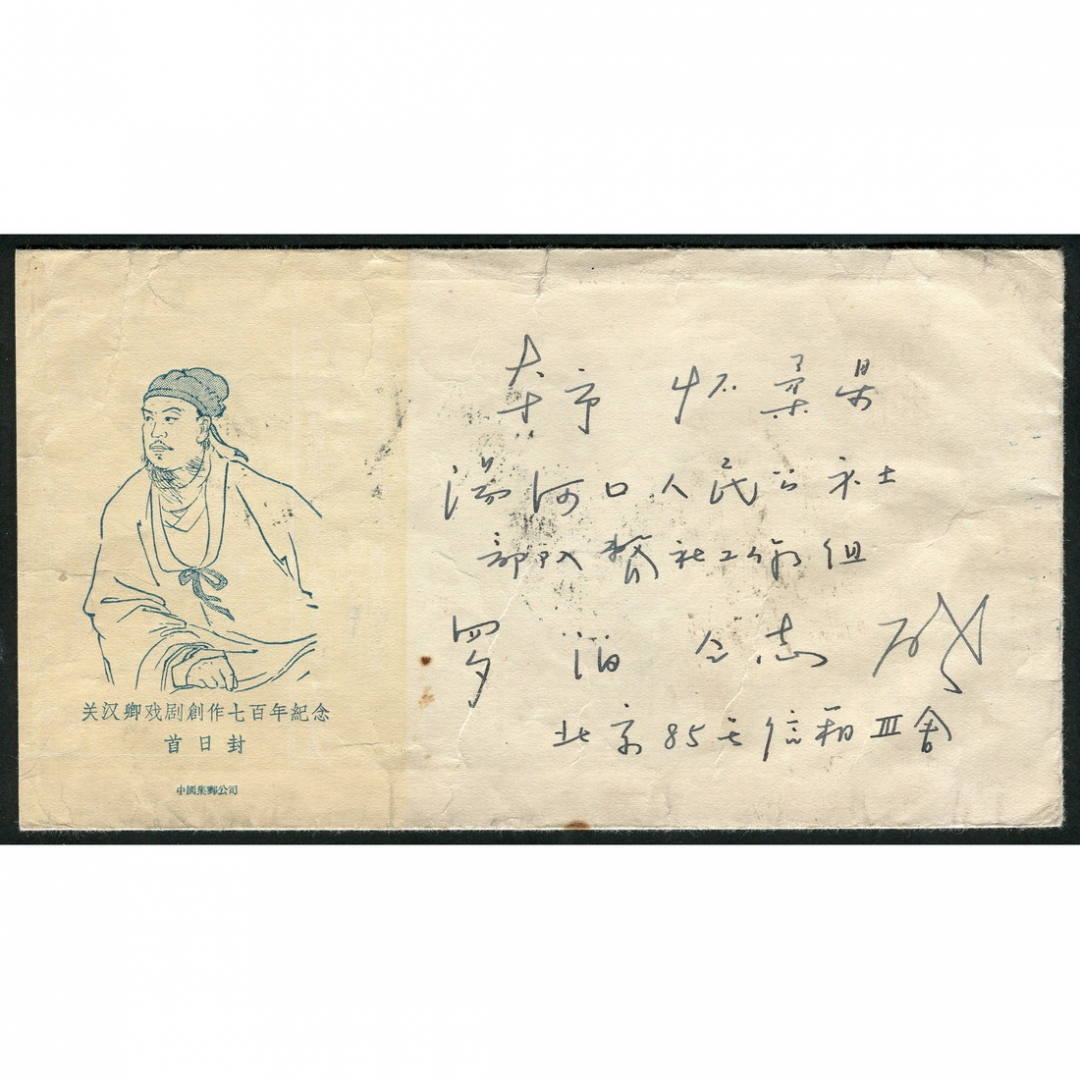 本市 怀柔县
汤河口人民公社
部队整社工作组
罗 泊 仝志
北京85号信箱Ⅲ舍
关汉卿戏剧創作七百年紀念
首日封
中國集郵公司